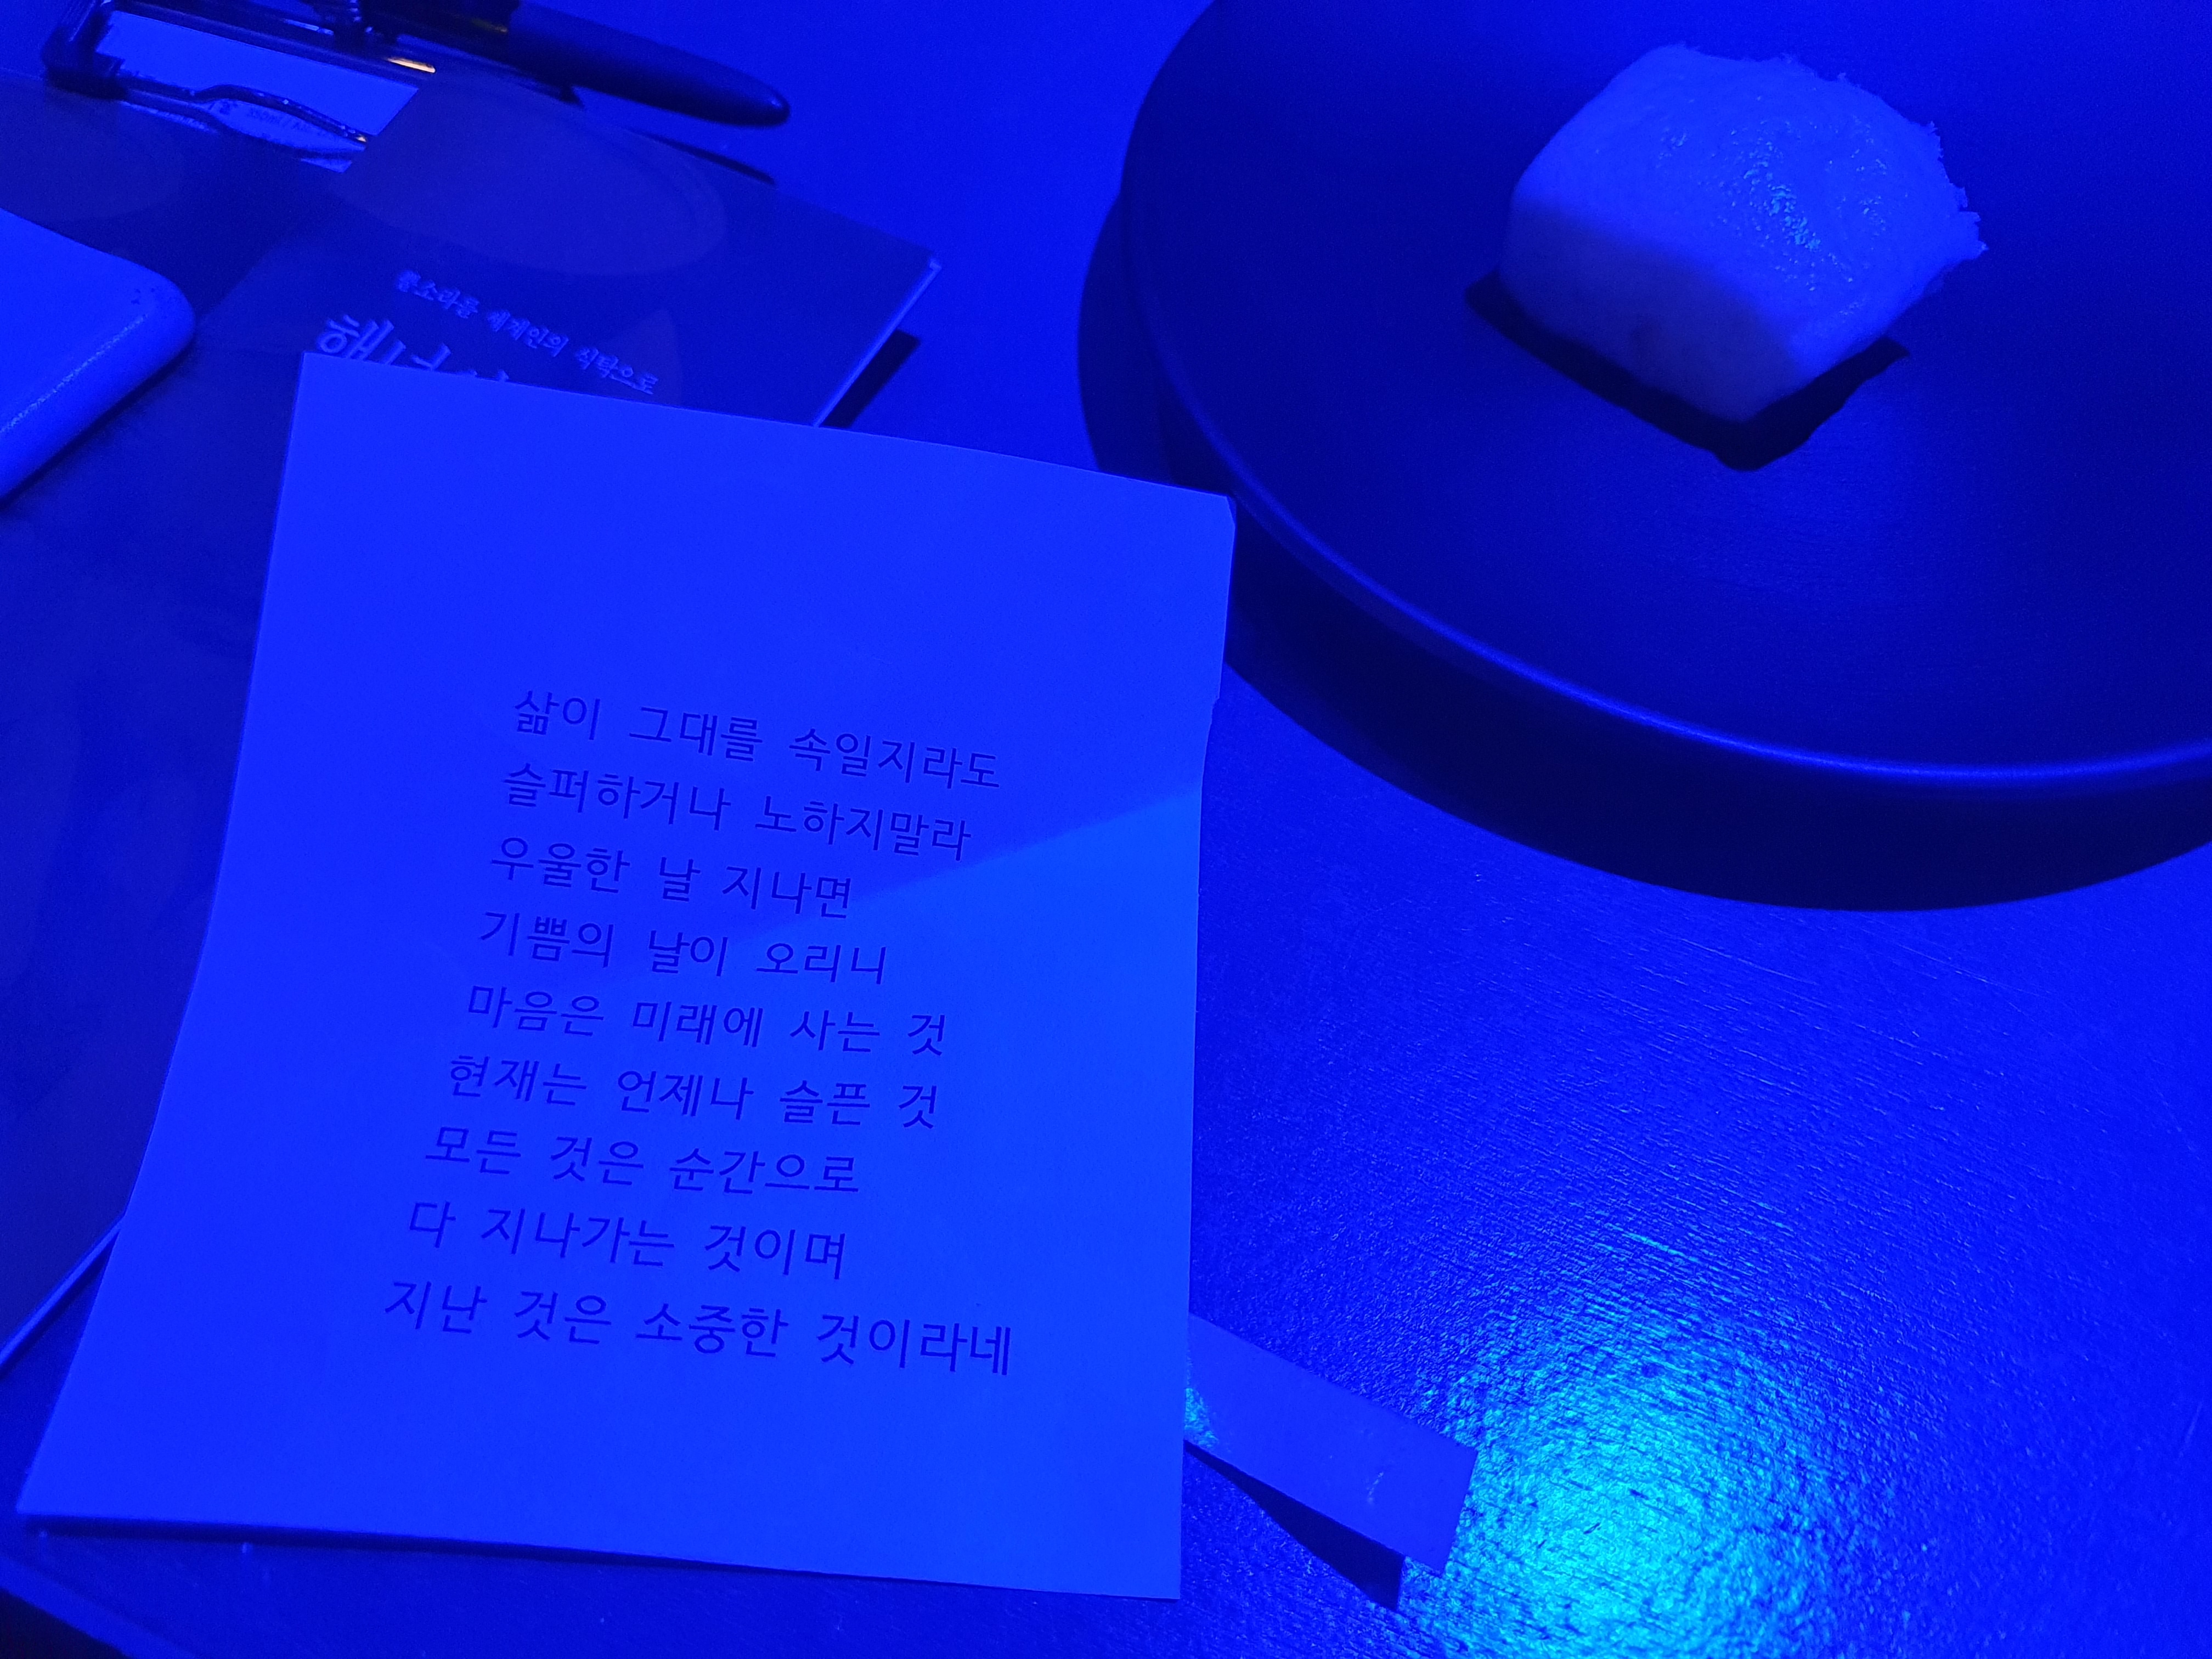 뿔소라를 세계인의 식탁으로
삶이 그대를 속일지라도
슬퍼하거나 노하지말라
우울한 날 지나면
기쁨의 날이 오리니
마음은 미래에 사는 것
현재는 언제나 슬픈 것
모든 것은 순간으로
다 지나가는 것이며
지난 것은 소중한 것이라네